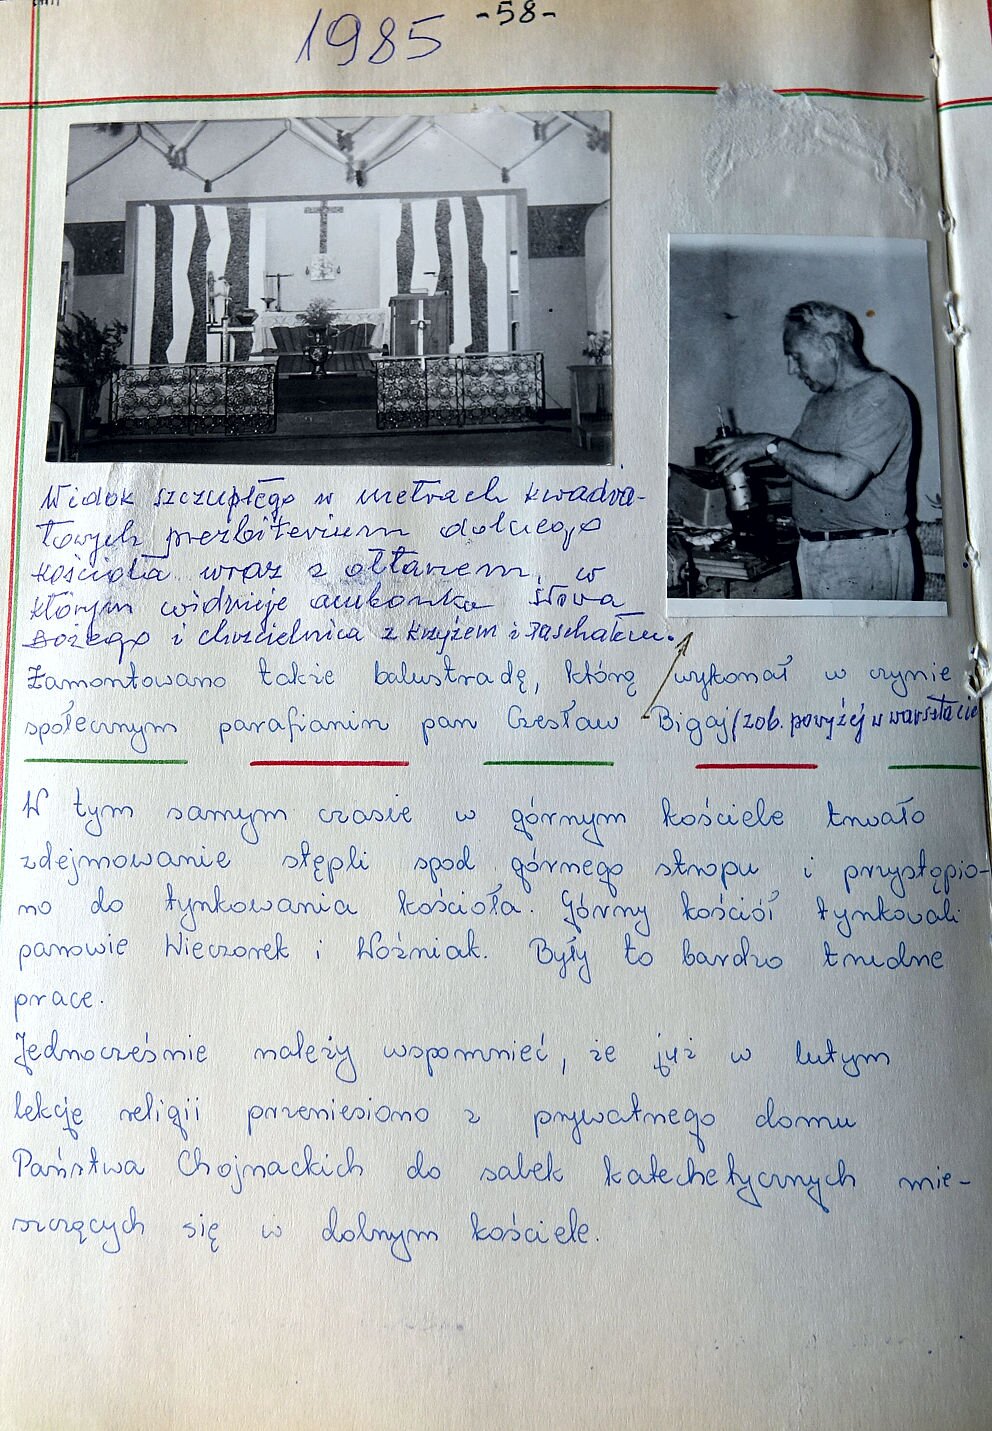 -58-
1985
Widok szczupłego w metrach kwadra-
towych prezbiterium dolnego
kościoła wraz z ołtarzem, w
którym widnieje ambonka Słowa
Bożego i chrzcielnica z krzyżem i Paschałem.
Zamontowano także balustradę, którą wykonał w czynie
społecznym parafianin pan Czesław Bigaj/zob. powyżej w warsztacie
W tym samym czasie w górnym kościele trwało
zdejmowanie stępli spod górnego stropu i przystąpio-
no do tynkowania kościoła. Górny kościół tynkowali
panowie Wieczorek i Woźniak. Były to bardzo trudne
prace.
Jednocześnie należy wspomnieć, że już w lutym
lekcję religii przeniesiono z prywatnego domu
Państwa Chojnackich do salek katechetycznych mie-
szczących się w dolnym kościele.